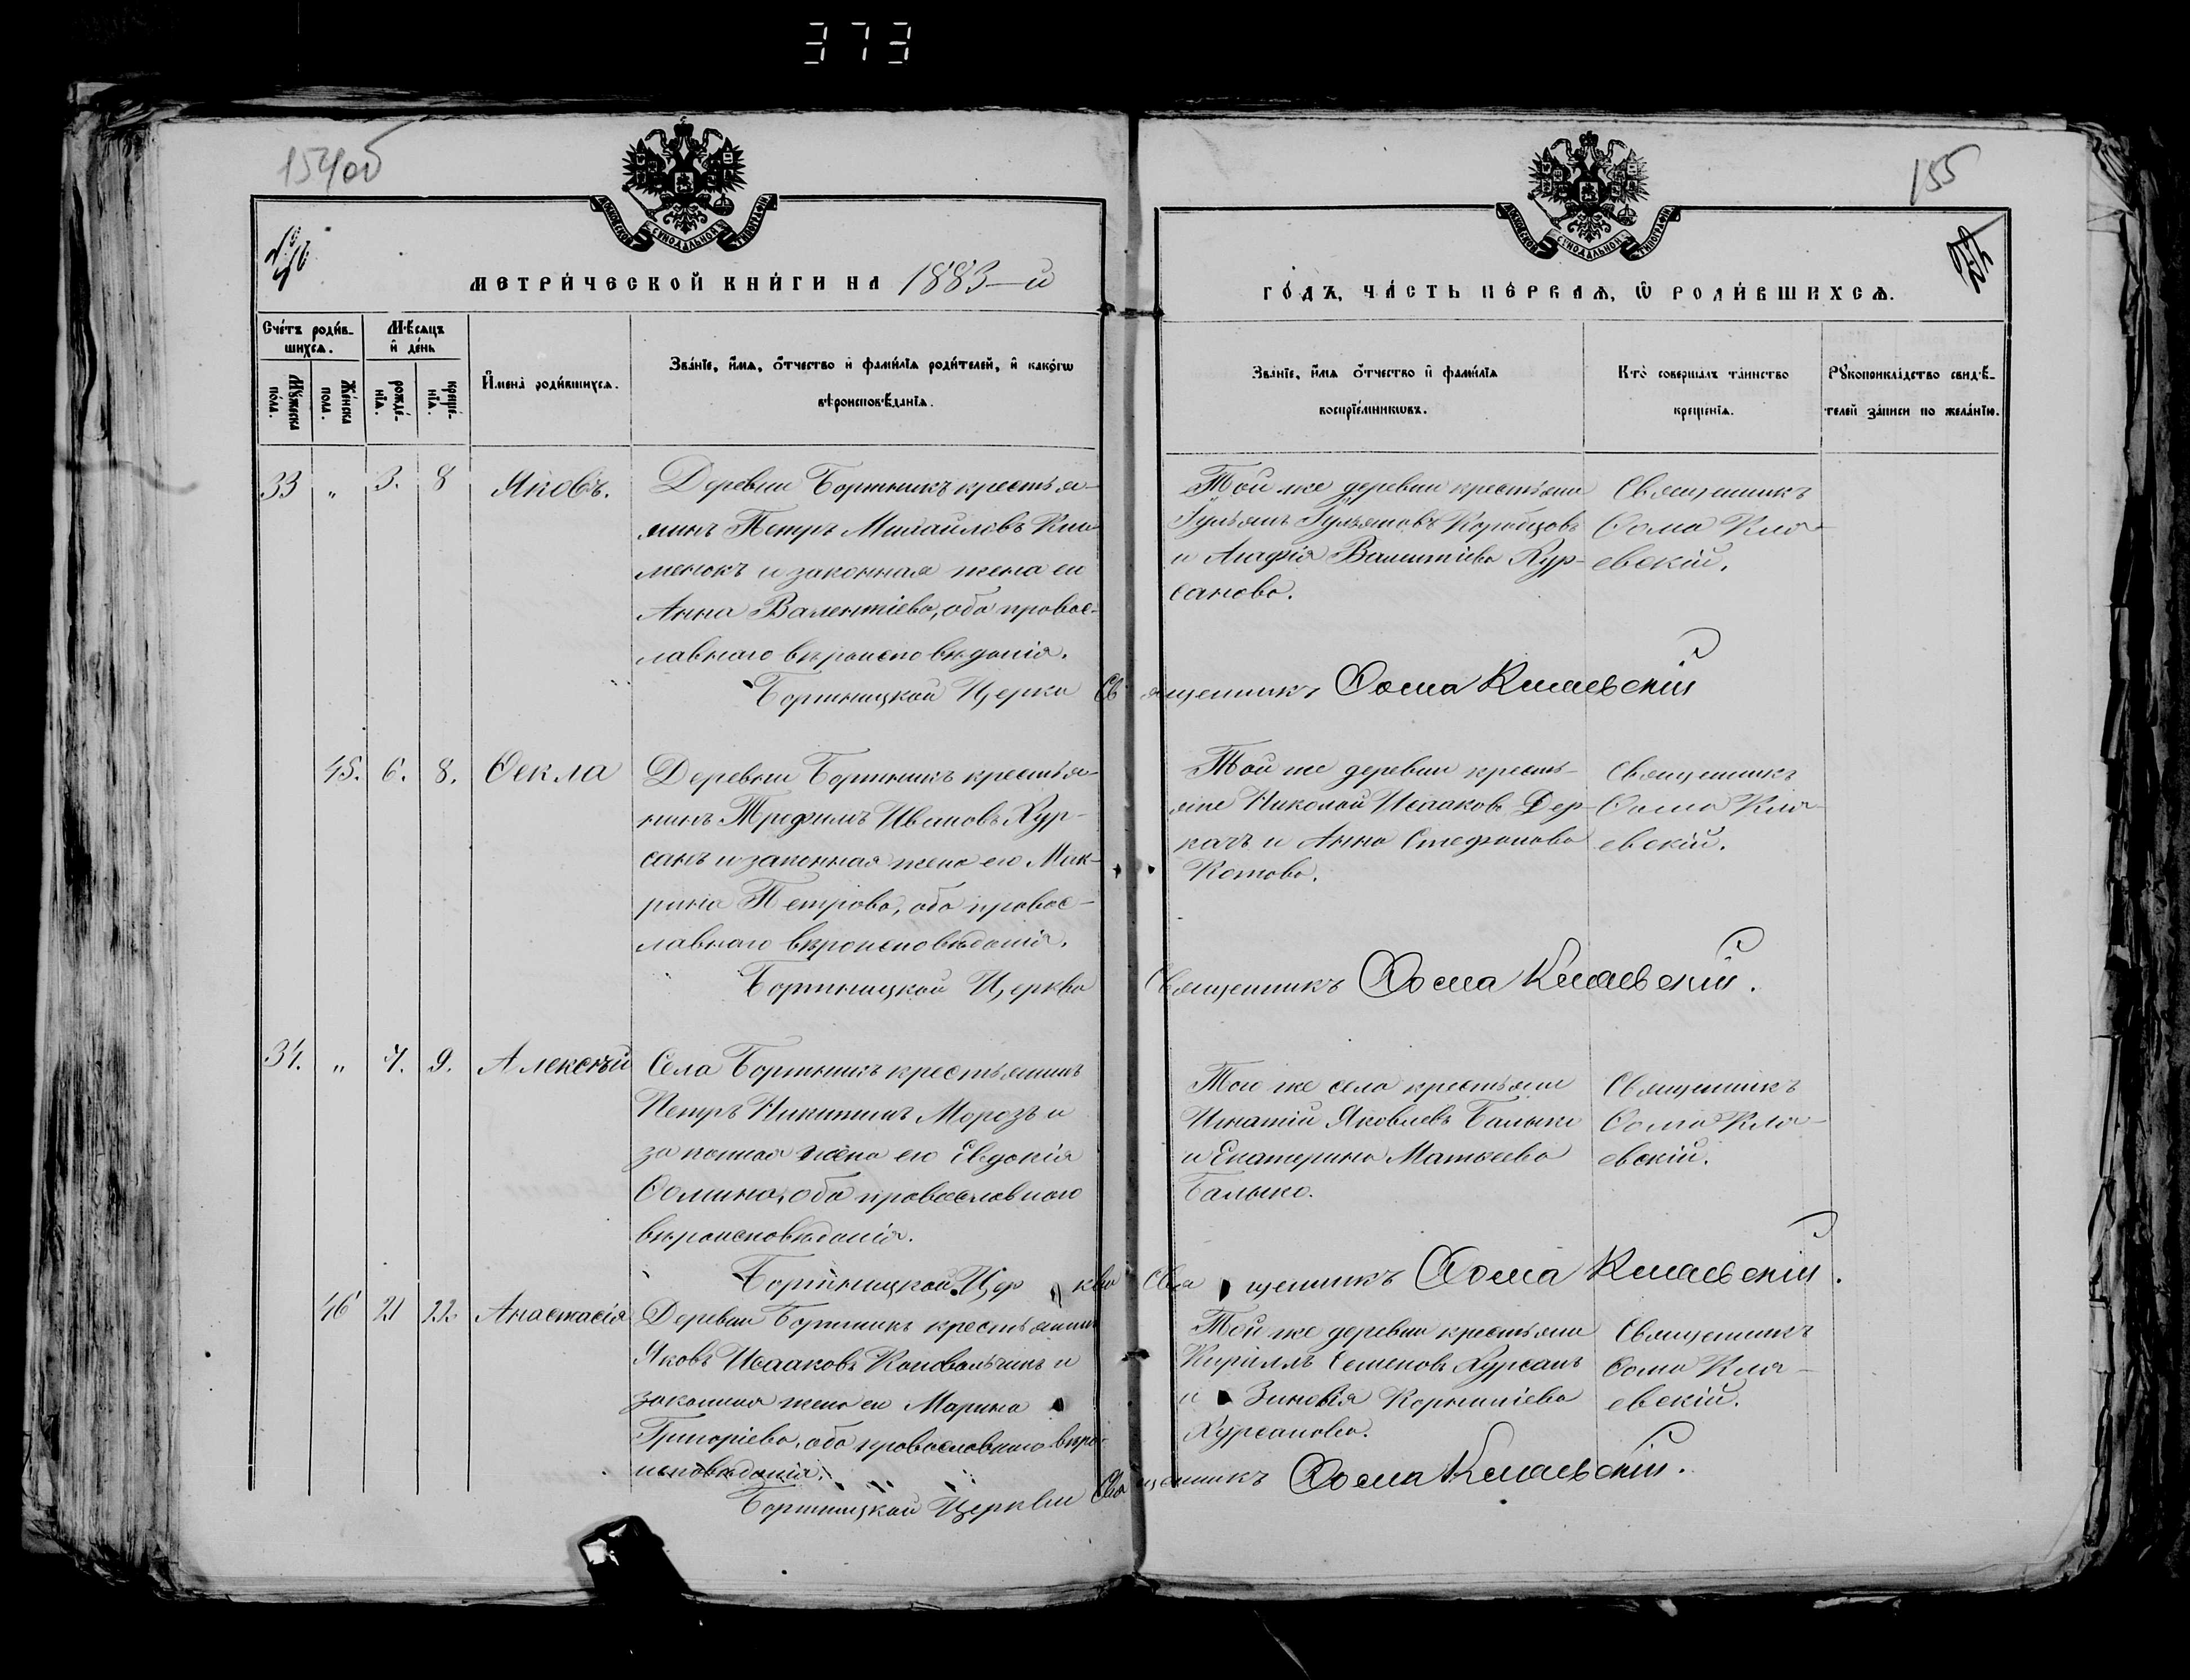 373
154об
155
МОСКОВСКОЙ СѴНОДАЛЬНОЙ ТИПОГРАФІИ
МОСКОВСКОЙ СѴНОДАЛЬНОЙ ТИПОГРАФІИ
МЕТРИ́ЧЕСКОЙ КНИ́ГИ НА 1883-й
ГО́ДЪ, ЧА́СТЬ ПЕ́РВАѦ, Ѡ РОДИ́ВШИХСѦ.
Сче́тъ роди́в-
шихсѧ.
Мѣ́сѧцъ
и҆ де́нь
Мꙋ́жеска
по́ла.
Же́нска
по́ла.
рожде́-
нїѧ.
креще́-
нїѧ.
И҆мена̀ роди́вшихсѧ.
Зва́нїе, и҆́мѧ, ѻ҆́тчество и҆ фами́лїѧ роди́телей, и҆ како́гѡ
вѣроисповѣ́данїѧ.
Зва́нїе, и҆́мѧ ѻ҆́тчество и҆ фами́лїѧ
воспрїе́мникѡвъ.
Кто̀ соверша́лъ та́инство
креще́нїѧ.
Рꙋкоприкла́дство свидѣ́-
телей за́писи по жела́нїю.
33 " 3. 8 Яковъ.
Деревни Бортникъ крестья-
нинъ Петръ Михаиловъ Кли-
менокъ и законная жена его
Анна Валентіева, оба правос-
лавнаго вѣроисповѣданія.
Той же деревни крестьяне
Коробцовъ
и Агафія Валентіева Хур-
санова.
Священникъ
Ѳома Кла-
евскій.
Бортницкой Церкви Священникъ Ѳома Клаевскій
45. 6. 8. Ѳекла
Деревни Бортникъ крестья-
нинъ Трофимъ Ивановъ Хур-
санъ и законная жена его Мак-
рина Петрова, оба правос-
лавнаго вѣроисповѣданія.
Той же деревни кресть-
яне Николай Исааковъ Дер-
качъ и Анна Стефанова
Котова.
Священникъ
Ѳома Кла-
евскій.
Бортницкой Церкви Священникъ Ѳома Клаевскій.
34. " 7. 9. Алексѣй
Села Бортникъ крестьянинъ
Петръ Никитинъ Морозъ и
законная жена его Евдокія
Ѳомина, оба православнаго
вѣроисповѣданія.
Того же села крестьяне
Игнатій Яковлевъ Балыко
и Екатерина Матѳеева
Балыко.
Священникъ
Ѳома Кла-
евскій.
Бортницкой Церкви Священникъ Ѳома Клаевскій.
46 21 22. Анастасія
Деревни Бортникъ крестьянинъ
Яковъ Исааковъ Коновальчикъ и
законная жена его Марина
Григоріева, оба православнаго вѣро-
исповѣданія.
Той же деревни крестьяне
Кириллъ Семеновъ Хурсанъ
и Зиновія Корнилiева
Хурсанова.
Священникъ
Ѳома Кла-
евскій.
Бортницкой Церкви Священникъ Ѳома Клаевскій.